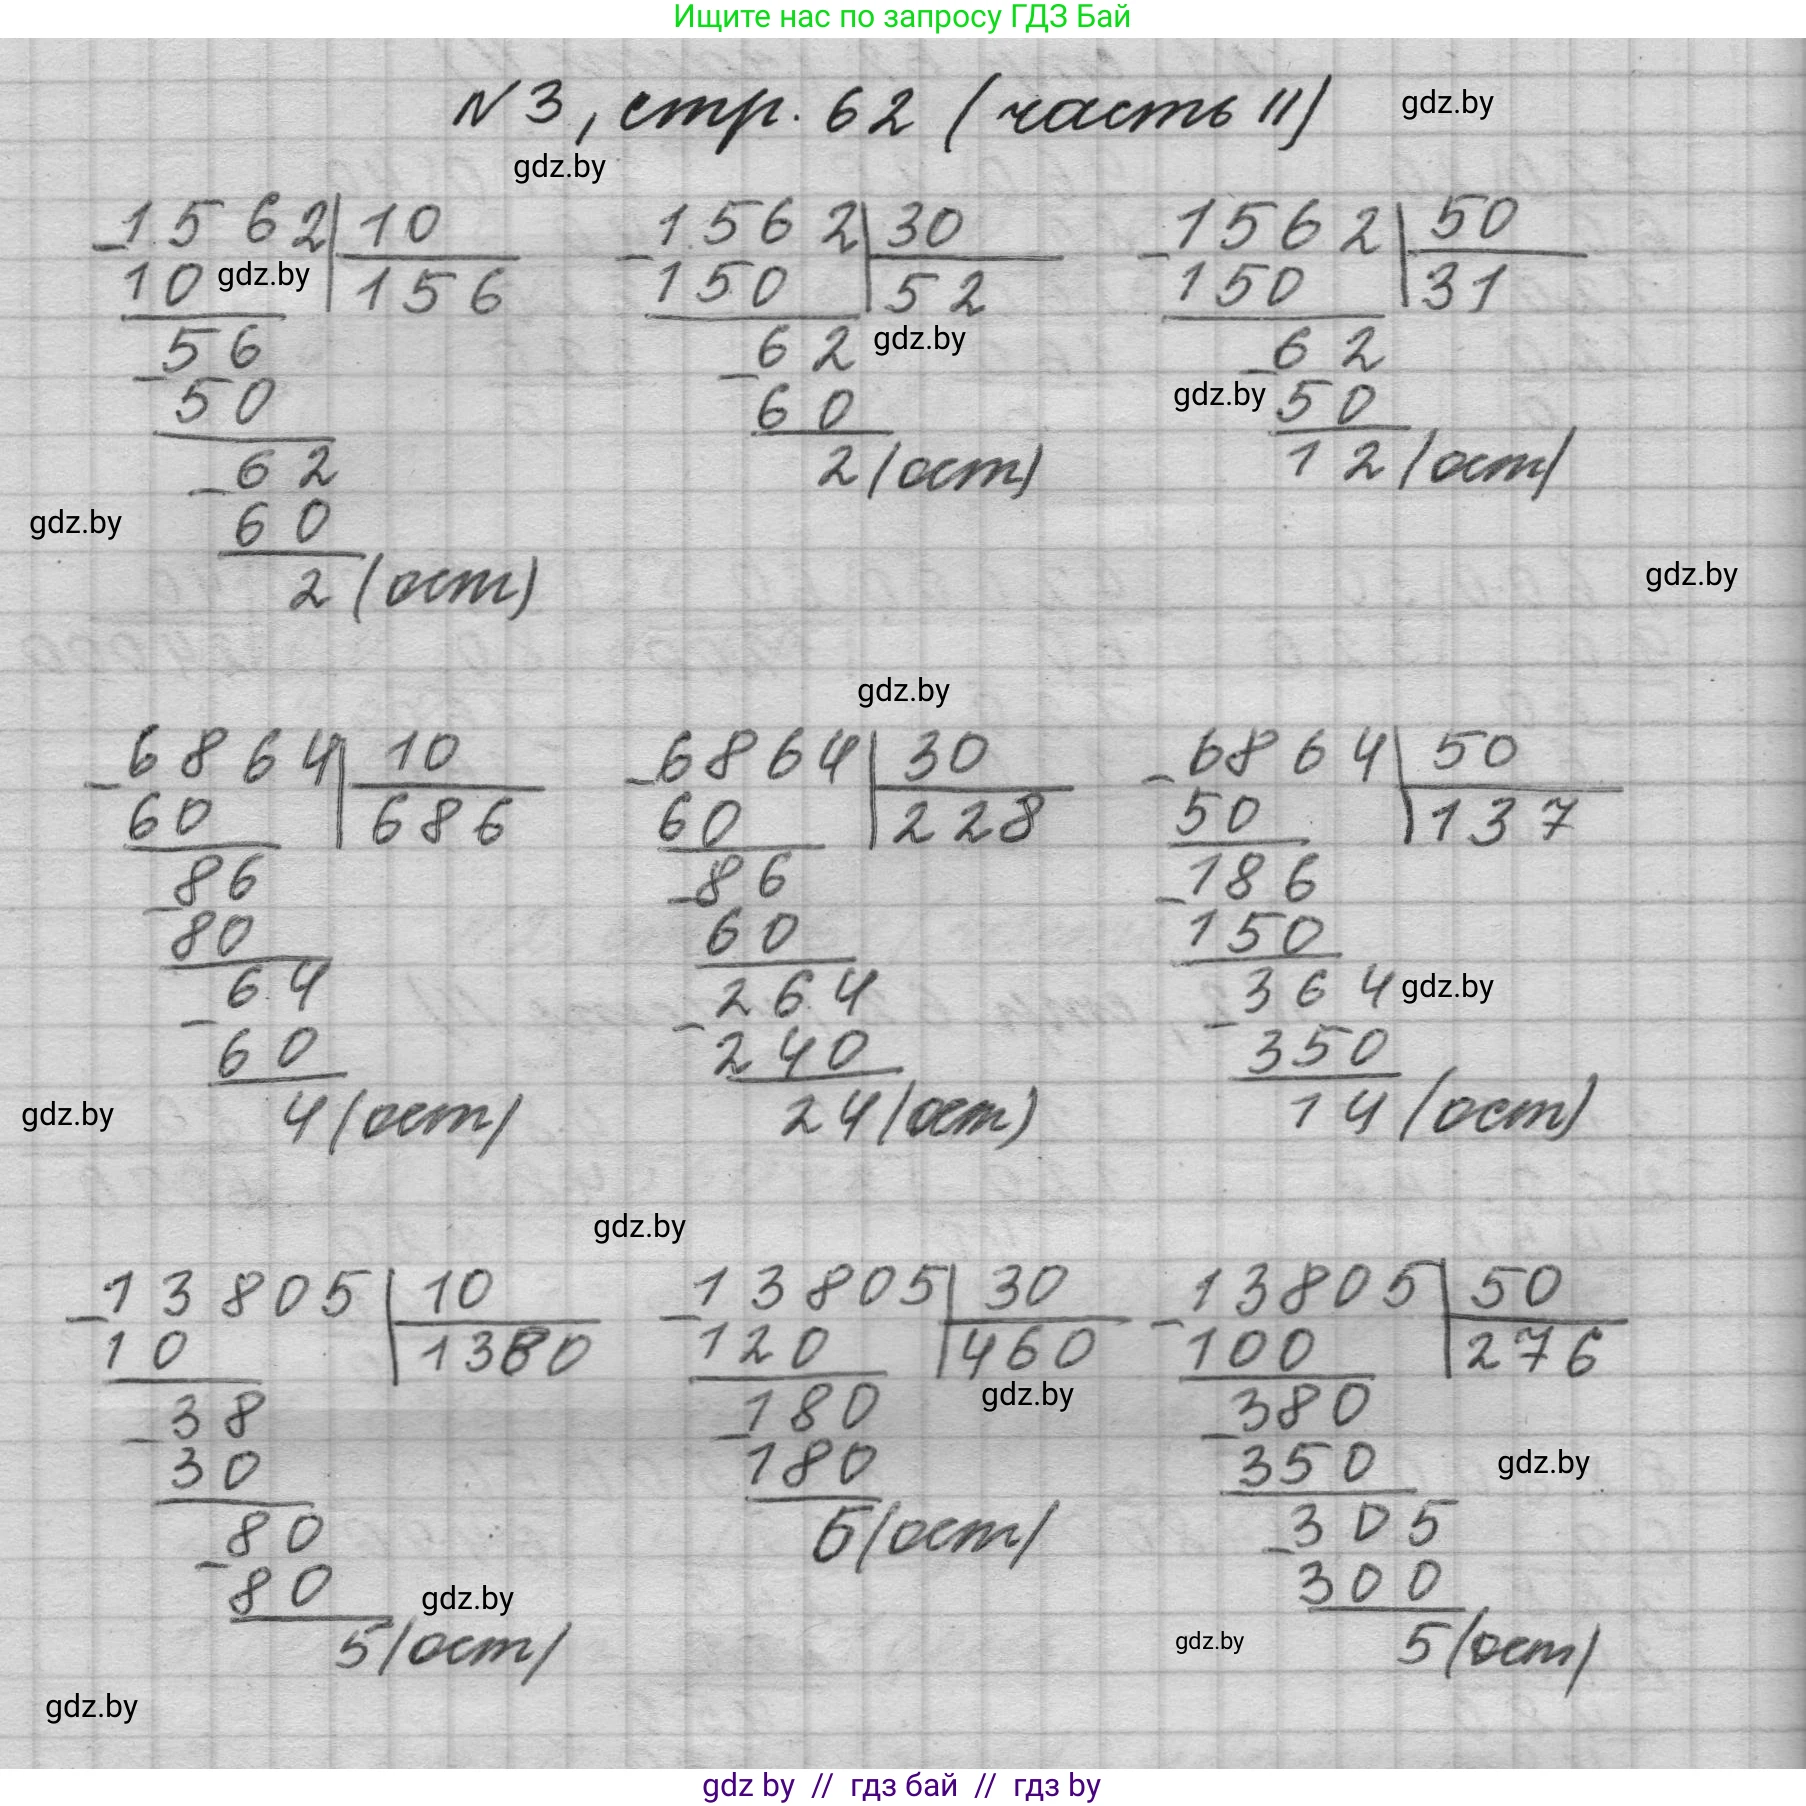 Ищите нас по запросу ГДЗ Бай
N3, стр. 62 (часть II)
gdz.by
gdz.by
1562 | 10 1562 | 30 1562 | 50
10 gdz.by 156 150 52 150 31
56 62 gdz.by 62
50 60 gdz.by 50
62 2 (ост) 12 (ост)
gdz.by 60
2 (ост) gdz.by
gdz.by
6864 | 10 6864 | 30 6864 | 50
60 686 60 228 50 137
86 86 186
80 60 150
64 264 364 gdz.by
60 240 350
gdz.by 4 (ост) 24 (ост) 14 (ост)
gdz.by
13805 | 10 13805 | 30 13805 | 50
10 1380 120 460 100 276
38 180 gdz.by 380
30 180 350 gdz.by
80 5 (ост) 305
80 gdz.by 300
5 (ост) gdz.by 5 (ост)
gdz.by
gdz by // гдз бай // гдз by